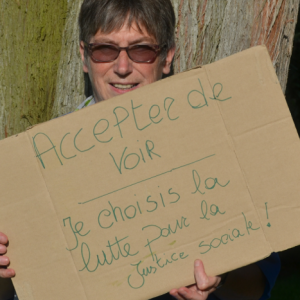 Accepter de
voir
Je choisis la
lutte pour la
justice sociale !